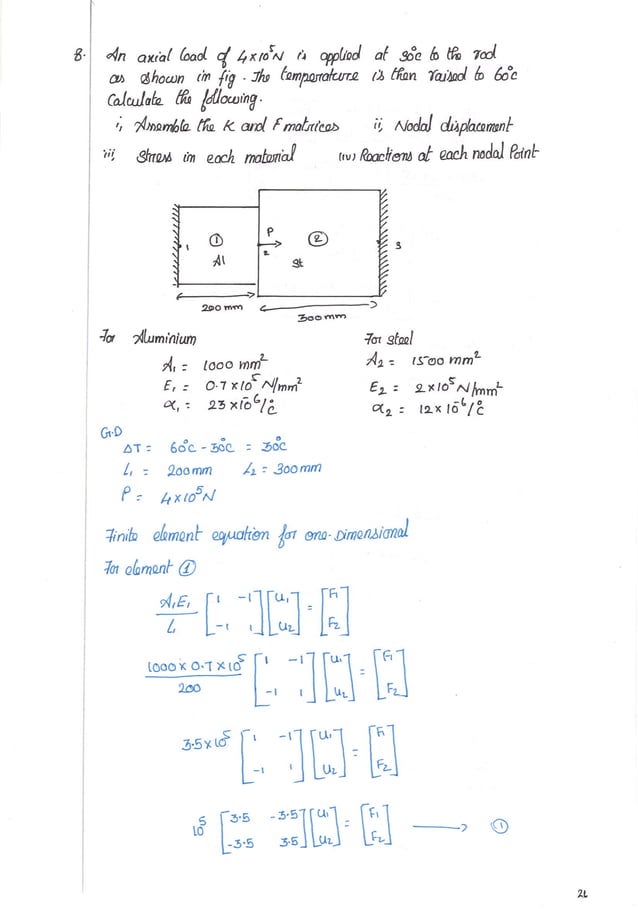 8. An axial load of 4×10⁵N is applied at 30°c to the rod
as shown in fig. The temperature is then raised to 60°c
Calculate the following.
i, Assemble the K and F matrices ii, Nodal displacement
iii, Stress in each material (iv) Reactions at each nodal Point
① P ②
1 2 3
Al St
200 mm
300 mm
For Aluminium For Steel
A₁ = 1000 mm² A₂ = 1500 mm²
E₁ = 0.7×10⁵ N/mm² E₂ = 2×10⁵ N/mm²
α₁ = 23×10⁻⁶/°c α₂ = 12×10⁻⁶/°c
G.D
ΔT = 60°c - 30°c = 30°c
L₁ = 200mm L₂ = 300mm
P = 4×10⁵N
Finite element equation for one-Dimensional
For element ①
A₁E₁/L₁ [1 -1; -1 1] [u₁; u₂] = [F₁; F₂]
1000 × 0.7 × 10⁵/200 [1 -1; -1 1] [u₁; u₂] = [F₁; F₂]
3.5×10⁵ [1 -1; -1 1] [u₁; u₂] = [F₁; F₂]
10⁵ [3.5 -3.5; -3.5 3.5] [u₁; u₂] = [F₁; F₂] → ①